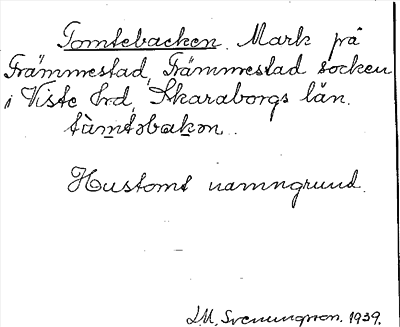 Tomtebacken. Mark på
Främmestad, Främmestad socken
i Viste hrd, Skaraborgs län.
tàmtəbakən.
Hustomt namngrund.
J.M. Svenungsson. 1939.